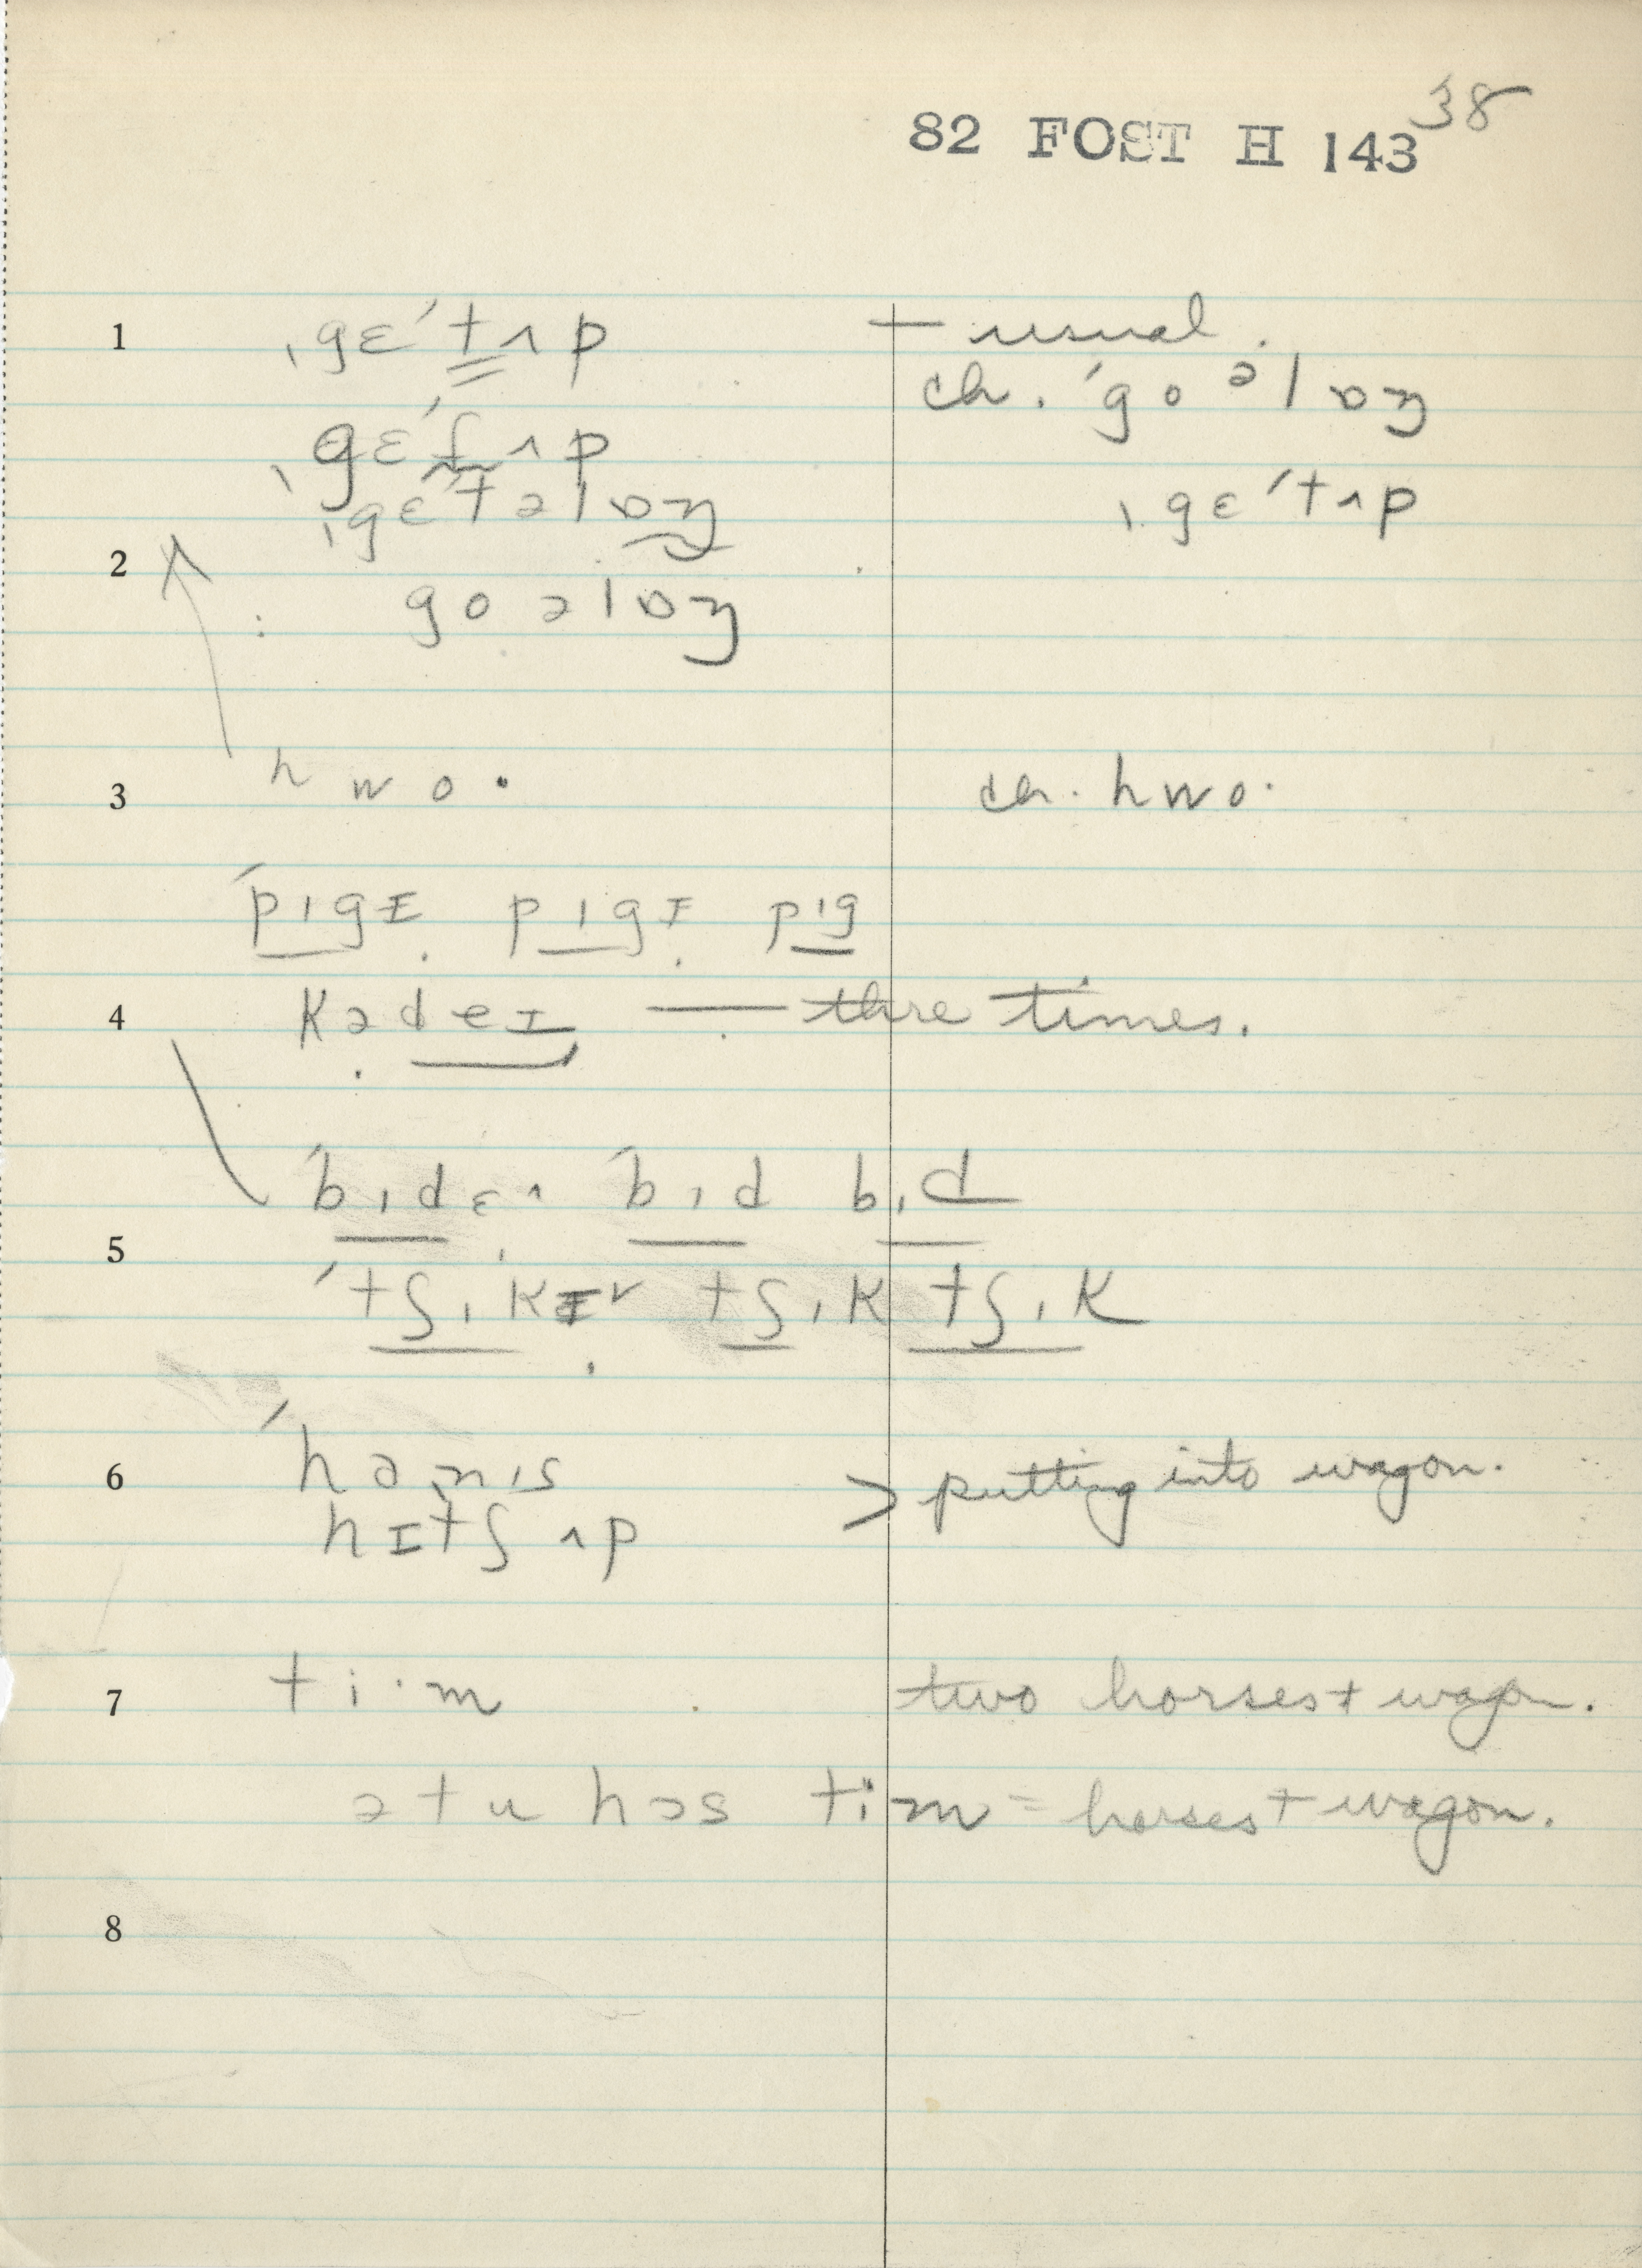 38
82 FOST H 143
1 ˌgɛˈtʌp t usual.
ch. ˈgoəlɒŋ
ˌgɛˈɾʌp
ˌgɛˈtəlɒŋ ˌgɛˈtʌp
2
goəlɒŋ
3 hwo· ch. hwo·
ˈpɪgɪ pɪgɪ pɪg
4 kədeɪ — three times.
ˈbɪdɛʌ ˈbɪd bɪd
5
ˈtʃɪkɪr tʃɪk tʃɪk
6 ˈhɑnɪs > putting into wagon.
hɪtʃ ʌp
7 ti·m two horses + wagon.
ə tu hɔs tim = horses + wagon.
8